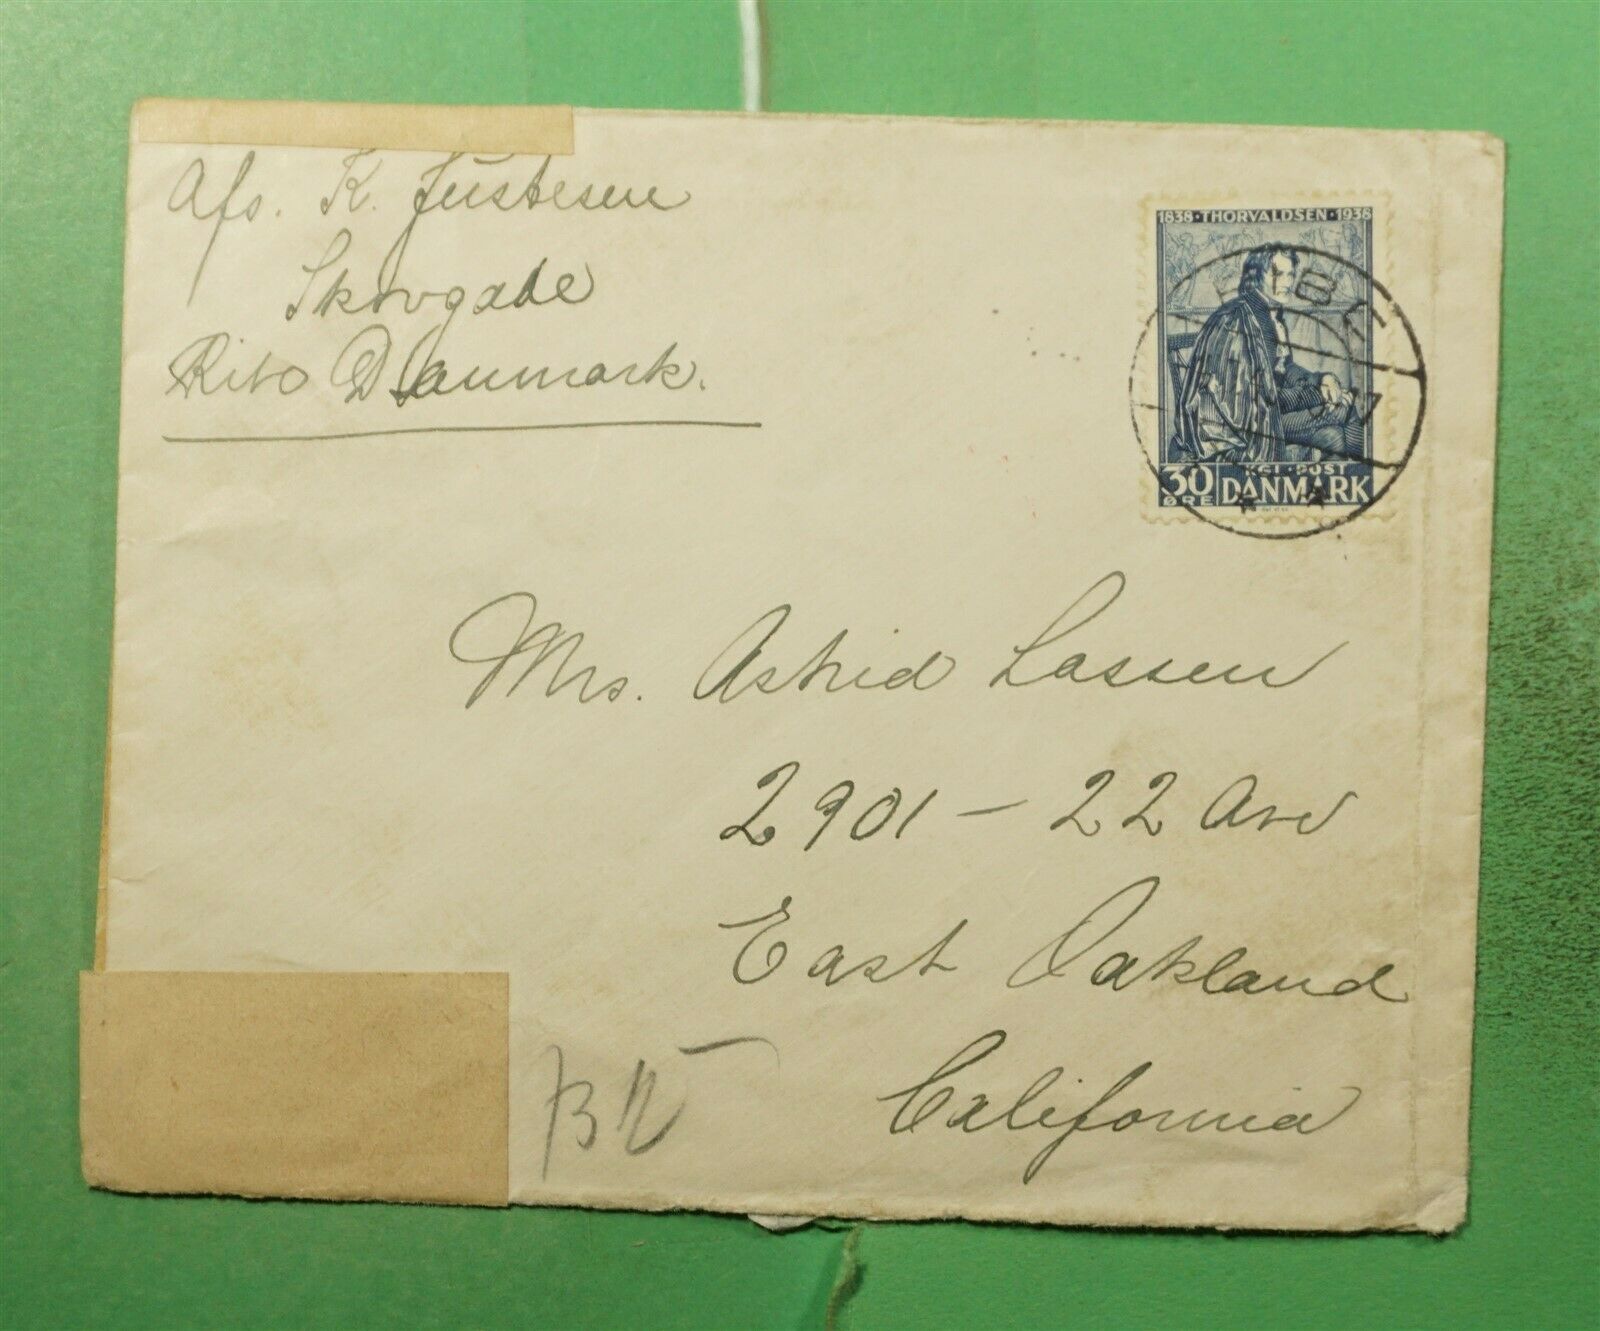 Afs. K. Justesen
Skovgade
Ribe Danmark.
1838 • THORVALDSEN • 1938
30 ØRE
KGL • POST
DANMARK
RIBE
Mrs. Astrid Lassen
2901 - 22 Ave
East Oakland
California